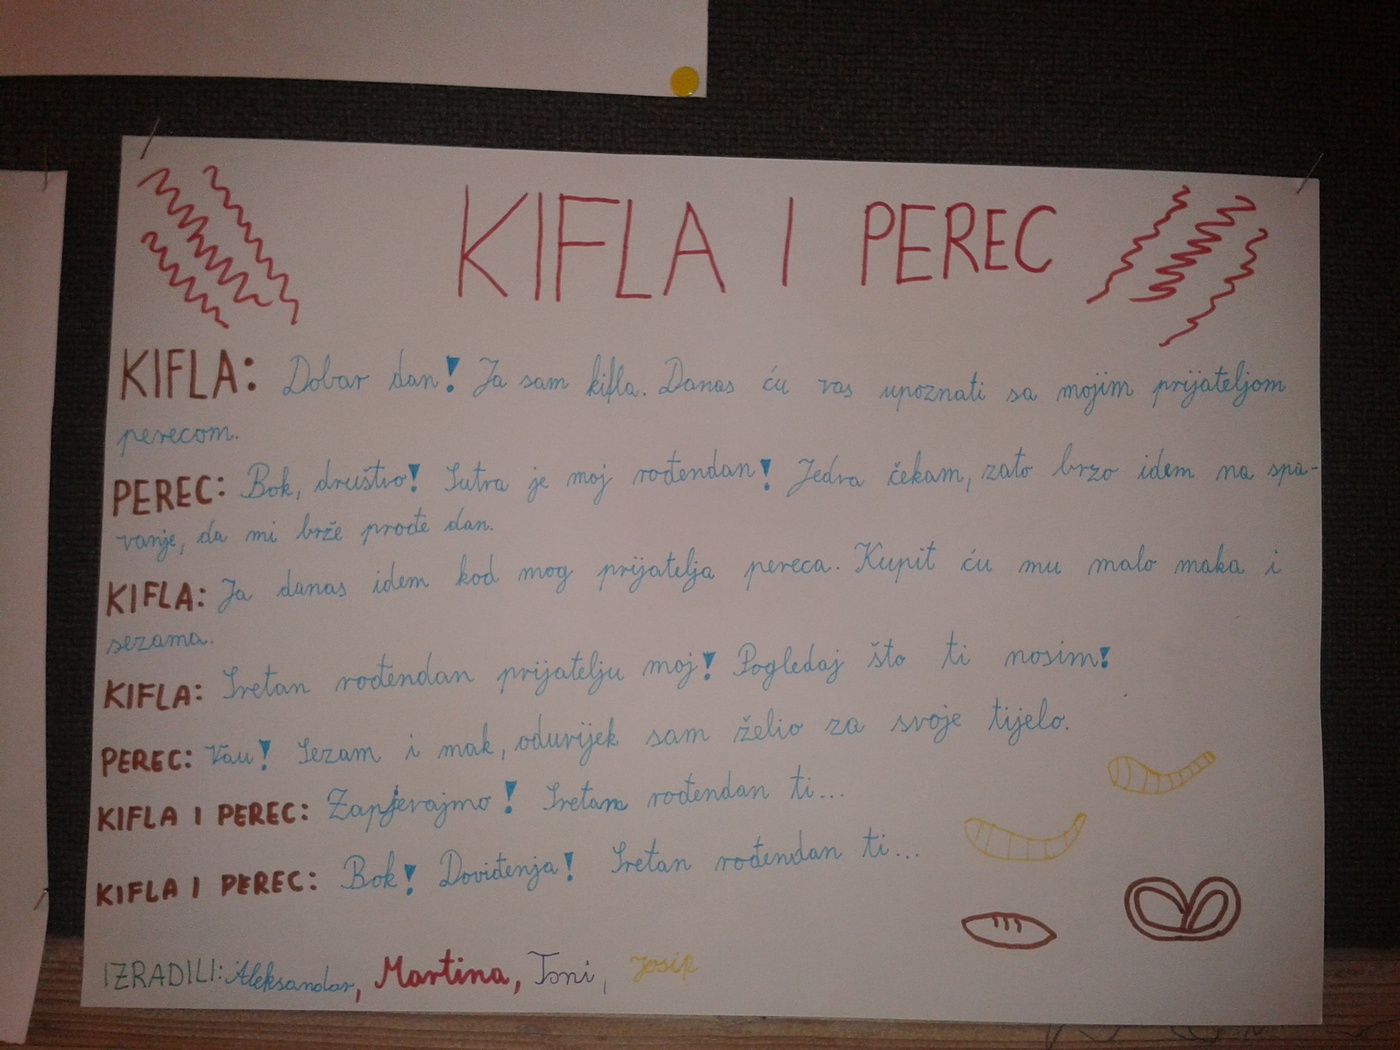 KIFLA I PEREC
KIFLA: Dobar dan! Ja sam kifla. Danas ću vas upoznati sa mojim prijateljom
perecom.
PEREC: Bok, društvo! Sutra je moj rođendan! Jedva čekam, zato brzo idem na spa-
vanje, da mi brže prođe dan.
KIFLA: Ja danas idem kod mog prijatelja pereca. Kupit ću mu malo maka i
sezama.
KIFLA: Sretan rođendan prijatelju moj! Pogledaj što ti nosim!
PEREC: Vau! Sezam i mak, oduvijek sam želio za svoje tijelo.
KIFLA I PEREC: Zapjevajmo! Sretan rođendan ti...
KIFLA I PEREC: Bok! Doviđenja! Sretan rođendan ti...
IZRADILI: Aleksandar, Martina, Toni, Josip